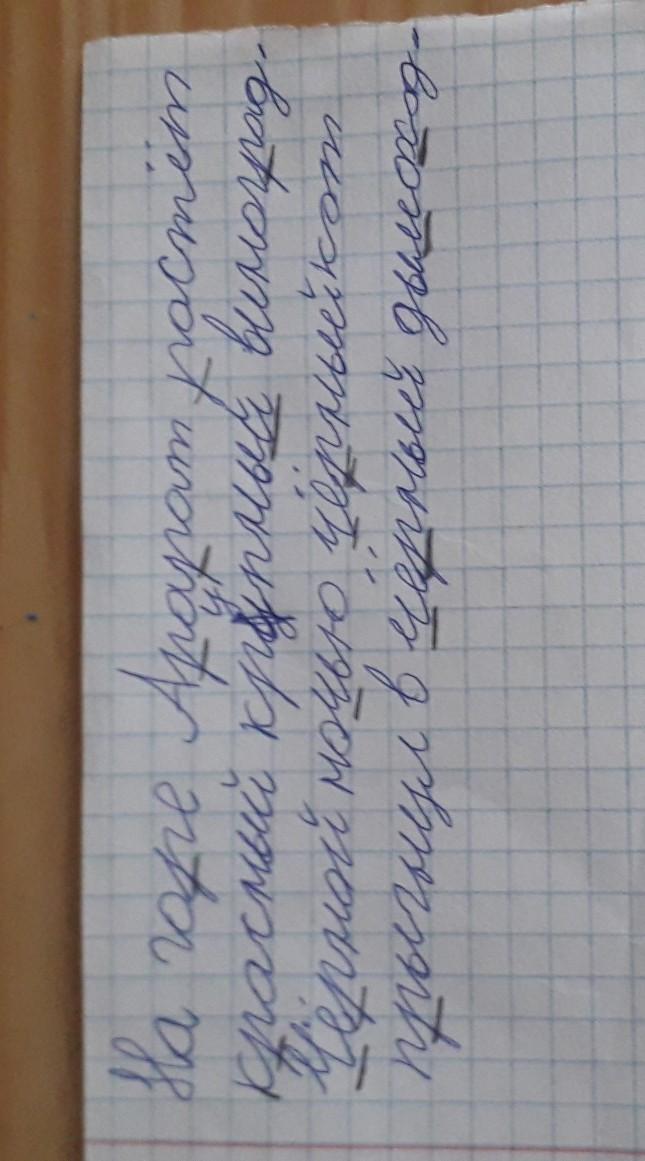 На горе Арарат растёт
красный крупный виноград.
Чёрной ночью чёрный кот
прыгнул в чёрный дымоход.